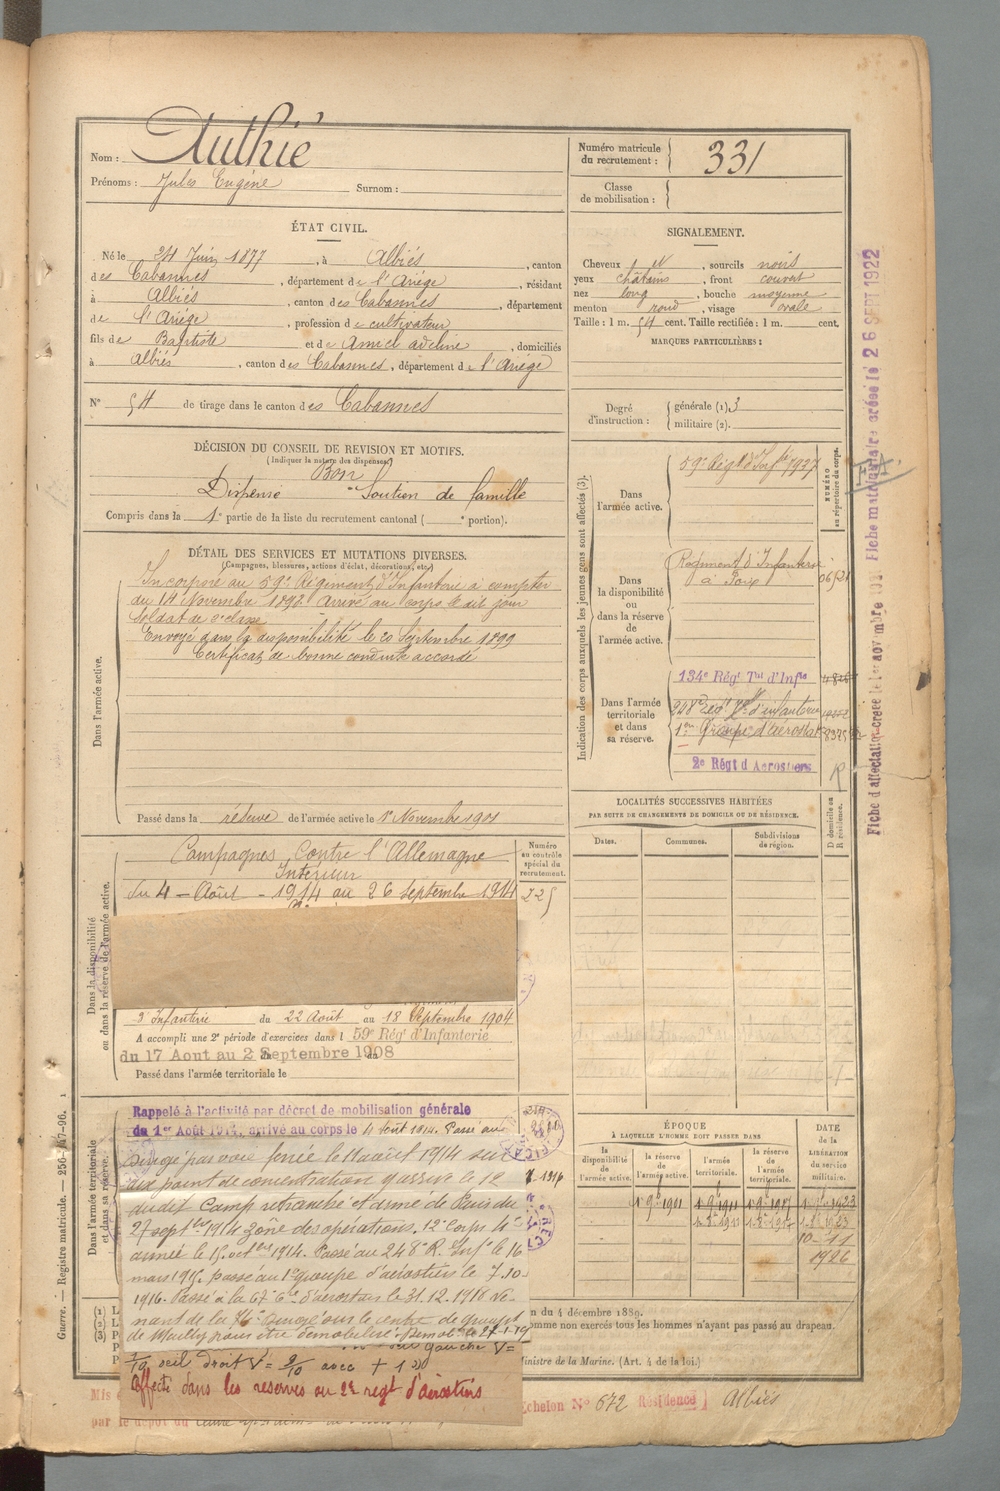 Nom : Authié
Prénoms : Jules Eugène Surnom :
Numéro matricule du recrutement : 331
Classe de mobilisation :
ÉTAT CIVIL.
Né le 24 Juin 1877, à Albiès, canton
des Cabannes, département de l'Ariège, résidant
à Albiès, canton des Cabannes, département
de l'Ariège, profession de cultivateur
fils de Baptiste et de Amiel adeline, domiciliés
à Albiès, canton des Cabannes, département de l'Ariège
N° 54 de tirage dans le canton des Cabannes
SIGNALEMENT.
Cheveux, sourcils noirs
yeux châtains, front couvert
nez long, bouche moyenne
menton rond, visage ovale
Taille : 1 m. 54 cent. Taille rectifiée : 1 m. cent.
MARQUES PARTICULIÈRES :
Degré d'instruction : générale (1) 3
militaire (2).
DÉCISION DU CONSEIL DE REVISION ET MOTIFS.
(Indiquer la nature des dispenses)
Bon
Dispensé "Soutien de famille
Compris dans la 1e partie de la liste du recrutement cantonal ( e portion).
DÉTAIL DES SERVICES ET MUTATIONS DIVERSES.
(Campagnes, blessures, actions d'éclat, décorations, etc.)
Dans l'armée active.
Incorporé au 59e Régiment d'Infanterie à compter
du 14 Novembre 1898. Arrivé au corps le dit jour
Soldat de 2e classe
Envoyé dans la disponibilité le 20 Septembre 1899
Certificat de bonne conduite accordé
Passé dans la réserve de l'armée active le 1er Novembre 1901
Indication des corps auxquels les jeunes gens sont affectés (3).
NUMÉRO au répertoire du corps.
Dans l'armée active.
59e Régt d'Infie 1937
Dans la disponibilité ou dans la réserve de l'armée active.
Régiment d'Infanterie
à Foix
Dans l'armée territoriale et dans sa réserve.
134e Régt Tal d'Infie
248e Régt d'infanterie
1er Groupe d'aérostat
2e Régt d Aerostiers
LOCALITÉS SUCCESSIVES HABITÉES
PAR SUITE DE CHANGEMENTS DE DOMICILE OU DE RÉSIDENCE.
Dates. Communes. Subdivisions de région.
D domicile ou R résidence.
Dans la disponibilité ou dans la réserve de l'armée active.
Campagnes Contre l'Allemagne
Intérieur
du 4 Août 1914 au 26 Septembre 1914
Numéro au contrôle spécial du recrutement.
225
d'Infanterie du 22 Août au 18 Septembre 1904
A accompli une 2e période d'exercices dans l 59e Régt d'Infanterie
du 17 Aout au 2 Septembre 1908
Passé dans l'armée territoriale le
Dans l'armée territoriale et dans sa réserve.
Rappelé à l'activité par décret de mobilisation générale
du 1er Août 1914, arrivé au corps le 4 août 1914. Passé au
Dirigé par voie ferrée le 11 août 1914 sur
aux point de concentration y assure le 12
dudit Camp retranché et armé de Paris du
27 septbre 1914 zône des opérations. 12e Corps 4e
armée le 15 octbre 1914. Passé au 248e R. Infie le 16
mars 1915. passé au 1er groupe d'aérostiers le 7.10-
1916. Passé à la 67e Cie d'aérostiers le 31.12.1918 ve-
nant de la Dirigé sur le centre de groupt
de Mailly pour être démobilisé. Demob le 27-1-19
œil gauche V=
œil droit V= 9/10 avec + 1
Affecté dans les reserves au 2e regt d'aérostiers
ÉPOQUE
À LAQUELLE L'HOMME DOIT PASSER DANS
la disponibilité de l'armée active. la réserve de l'armée active. l'armée territoriale. la réserve de l'armée territoriale.
DATE de la LIBÉRATION du service militaire.
1 9bre 1901 1 9bre 1911 1 9bre 1917 1923
10-11
1926
n du 4 décembre 1889.
omme non exercés tous les hommes n'ayant pas passé au drapeau.
Ministre de la Marine. (Art. 4 de la loi.)
Echelon N° 672 Résidence Albiès
par le dépôt du
Guerre. — Registre matricule. — 256-147-96.
Fiche matriculaire créée le 26 SEPT 1922
Fiche d'affectation créée le 1er novembre